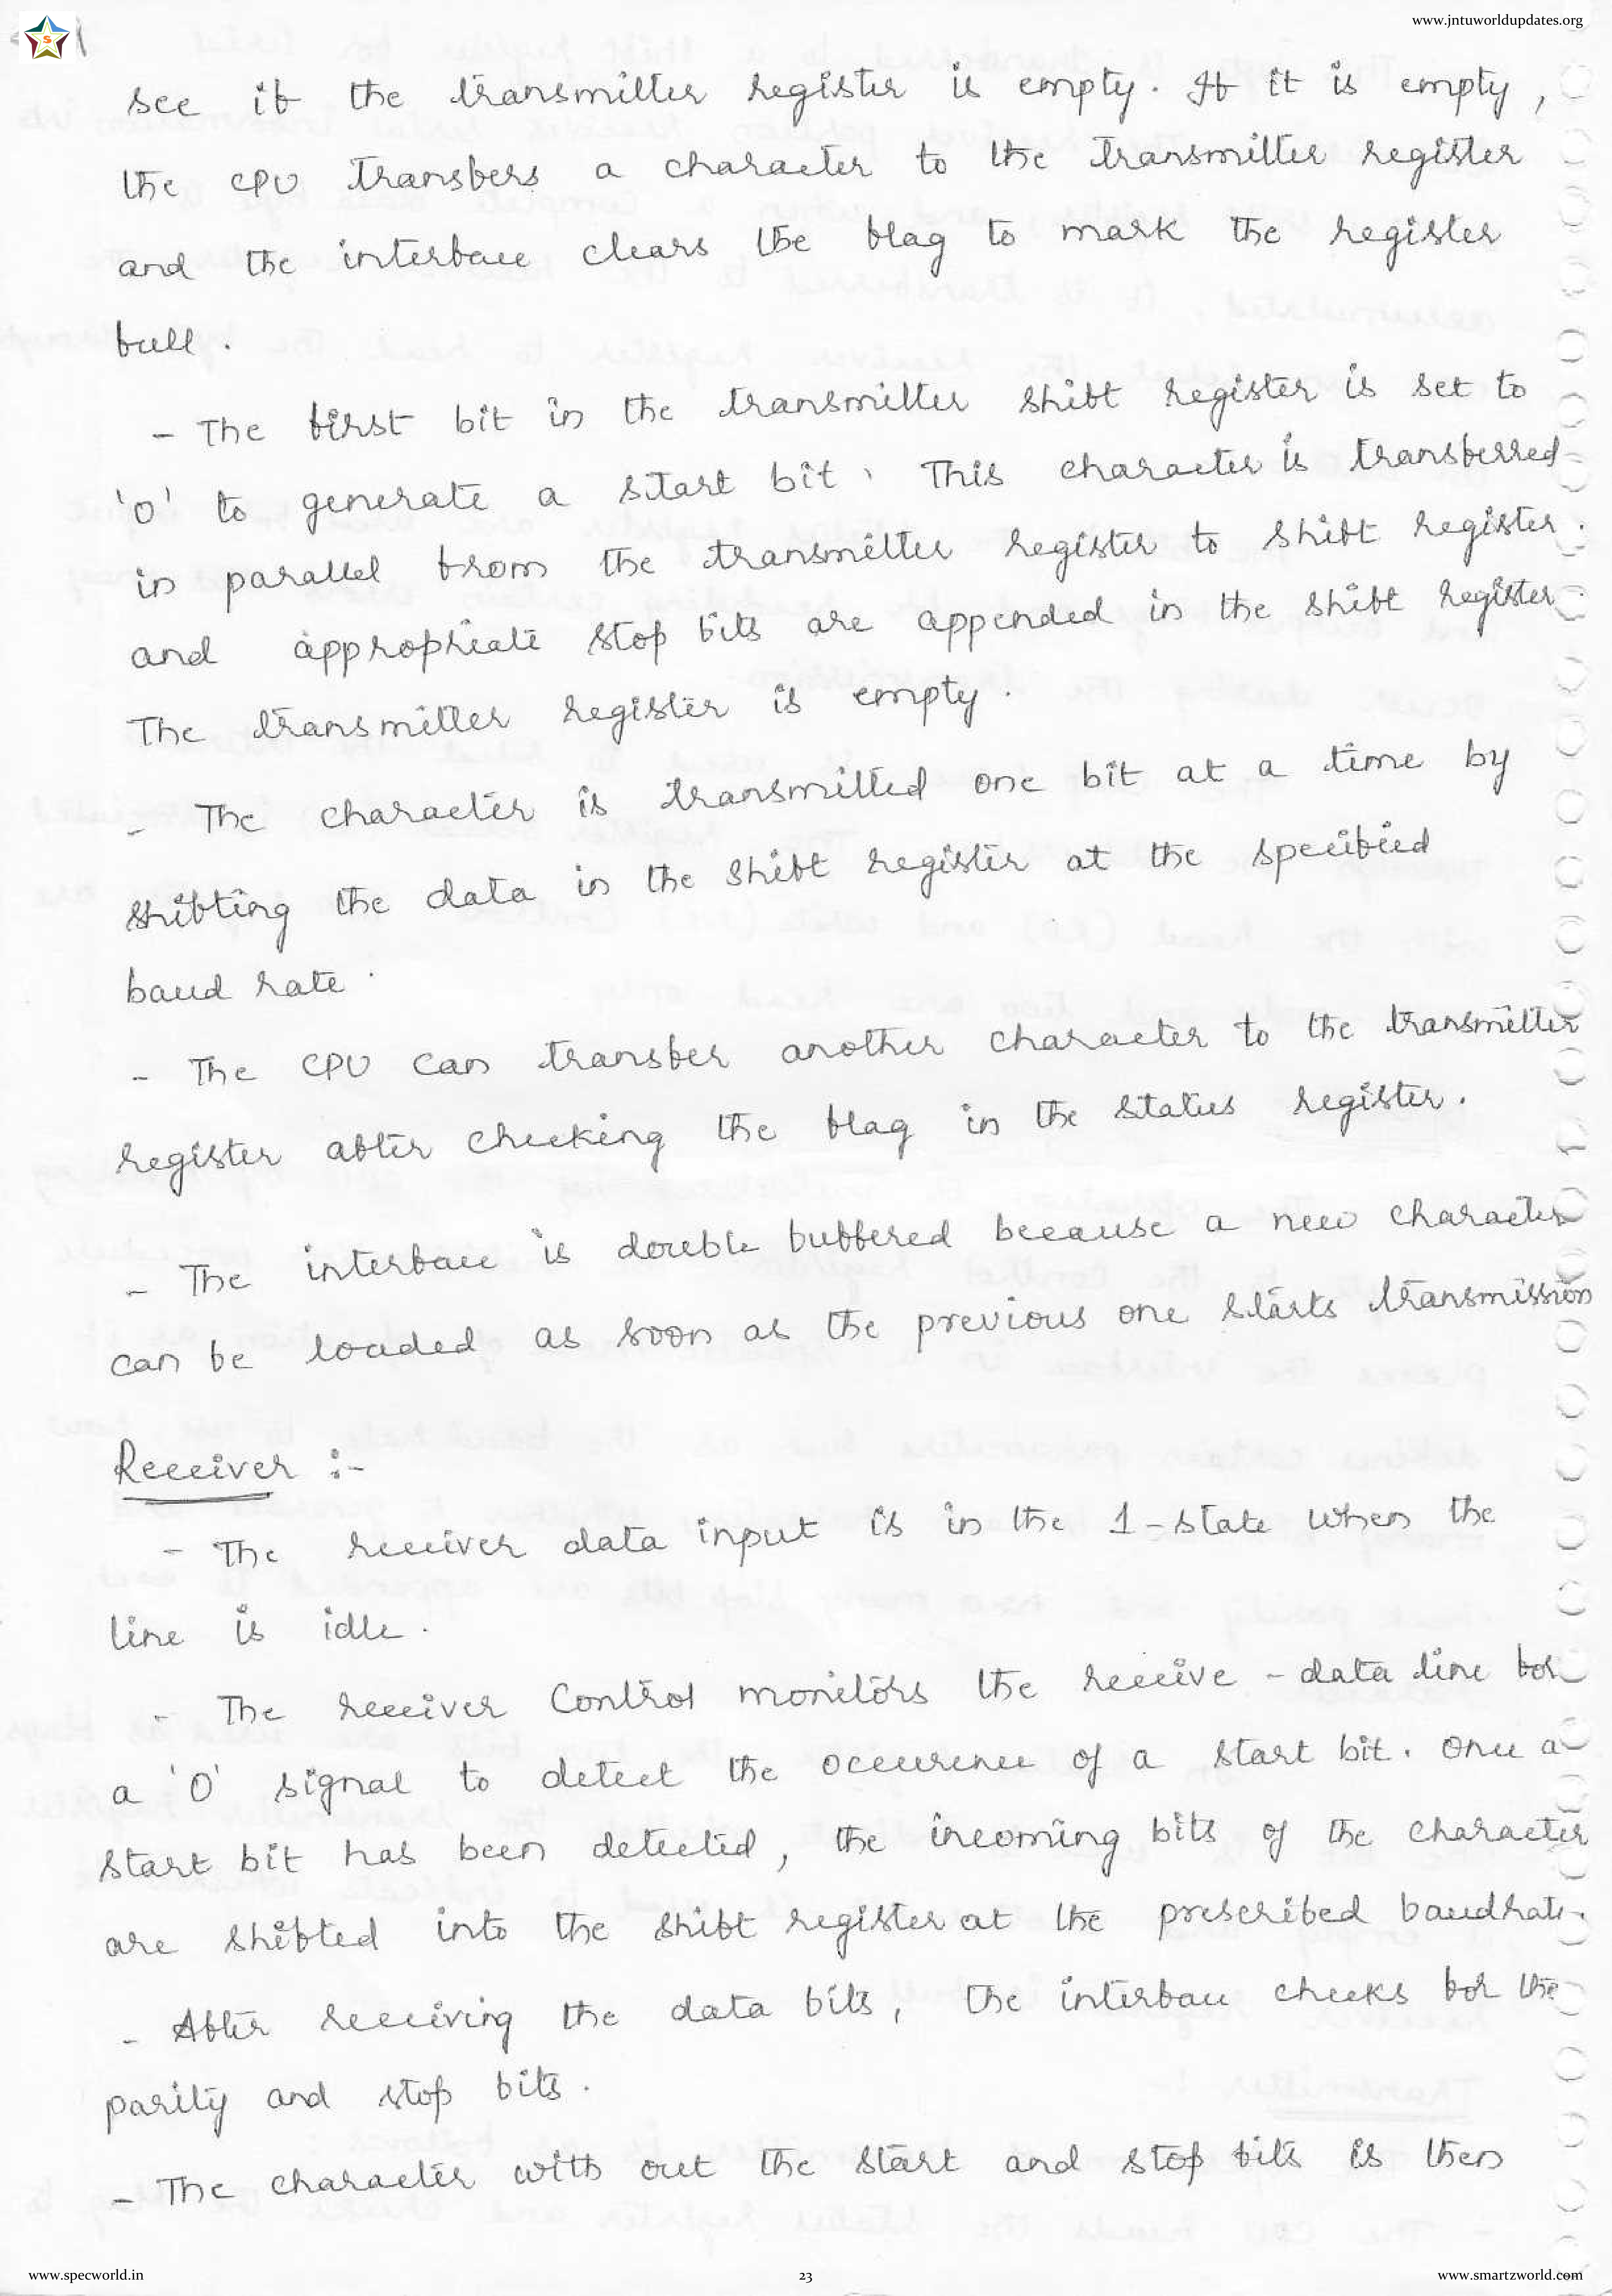 www.jntuworldupdates.org
S
see if the transmitter register is empty. If it is empty,
the CPU transfers a character to the transmitter register
and the interface clears the flag to mark the register
full.
- The first bit in the transmitter shift register is set to
'0' to generate a start bit. This character is transferred
in parallel from the transmitter register to shift register.
and appropriate stop bits are appended in the shift register.
The transmitter register is empty.
- The character is transmitted one bit at a time by
shifting the data in the shift register at the specified
baud rate.
- The CPU can transfer another character to the transmitter
register after checking the flag in the status register.
- The interface is double buffered because a new character
can be loaded as soon as the previous one starts transmission
Receiver :-
- The receiver data input is in the 1-state when the
line is idle.
- The receiver control monitors the receive - data line for
a '0' signal to detect the occurence of a start bit. Once a
start bit has been detected, the incoming bits of the character
are shifted into the shift register at the prescribed baudrate.
- After receiving the data bits, the interface checks for the
parity and stop bits.
- The character with out the start and stop bits is then
www.specworld.in
23
www.smartzworld.com